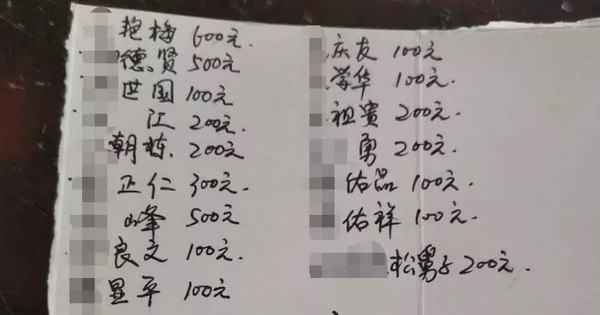 艳梅 600元.
德贤 500元
世国 100元
江 200元.
朝栋 200元
正仁 300元.
峰 500元
良文 100元.
显平 100元
庆友 100元
荣华 100元.
祖贵 200元.
勇 200元.
佑品 100元.
佑祥 100元.
松舅子 200元.